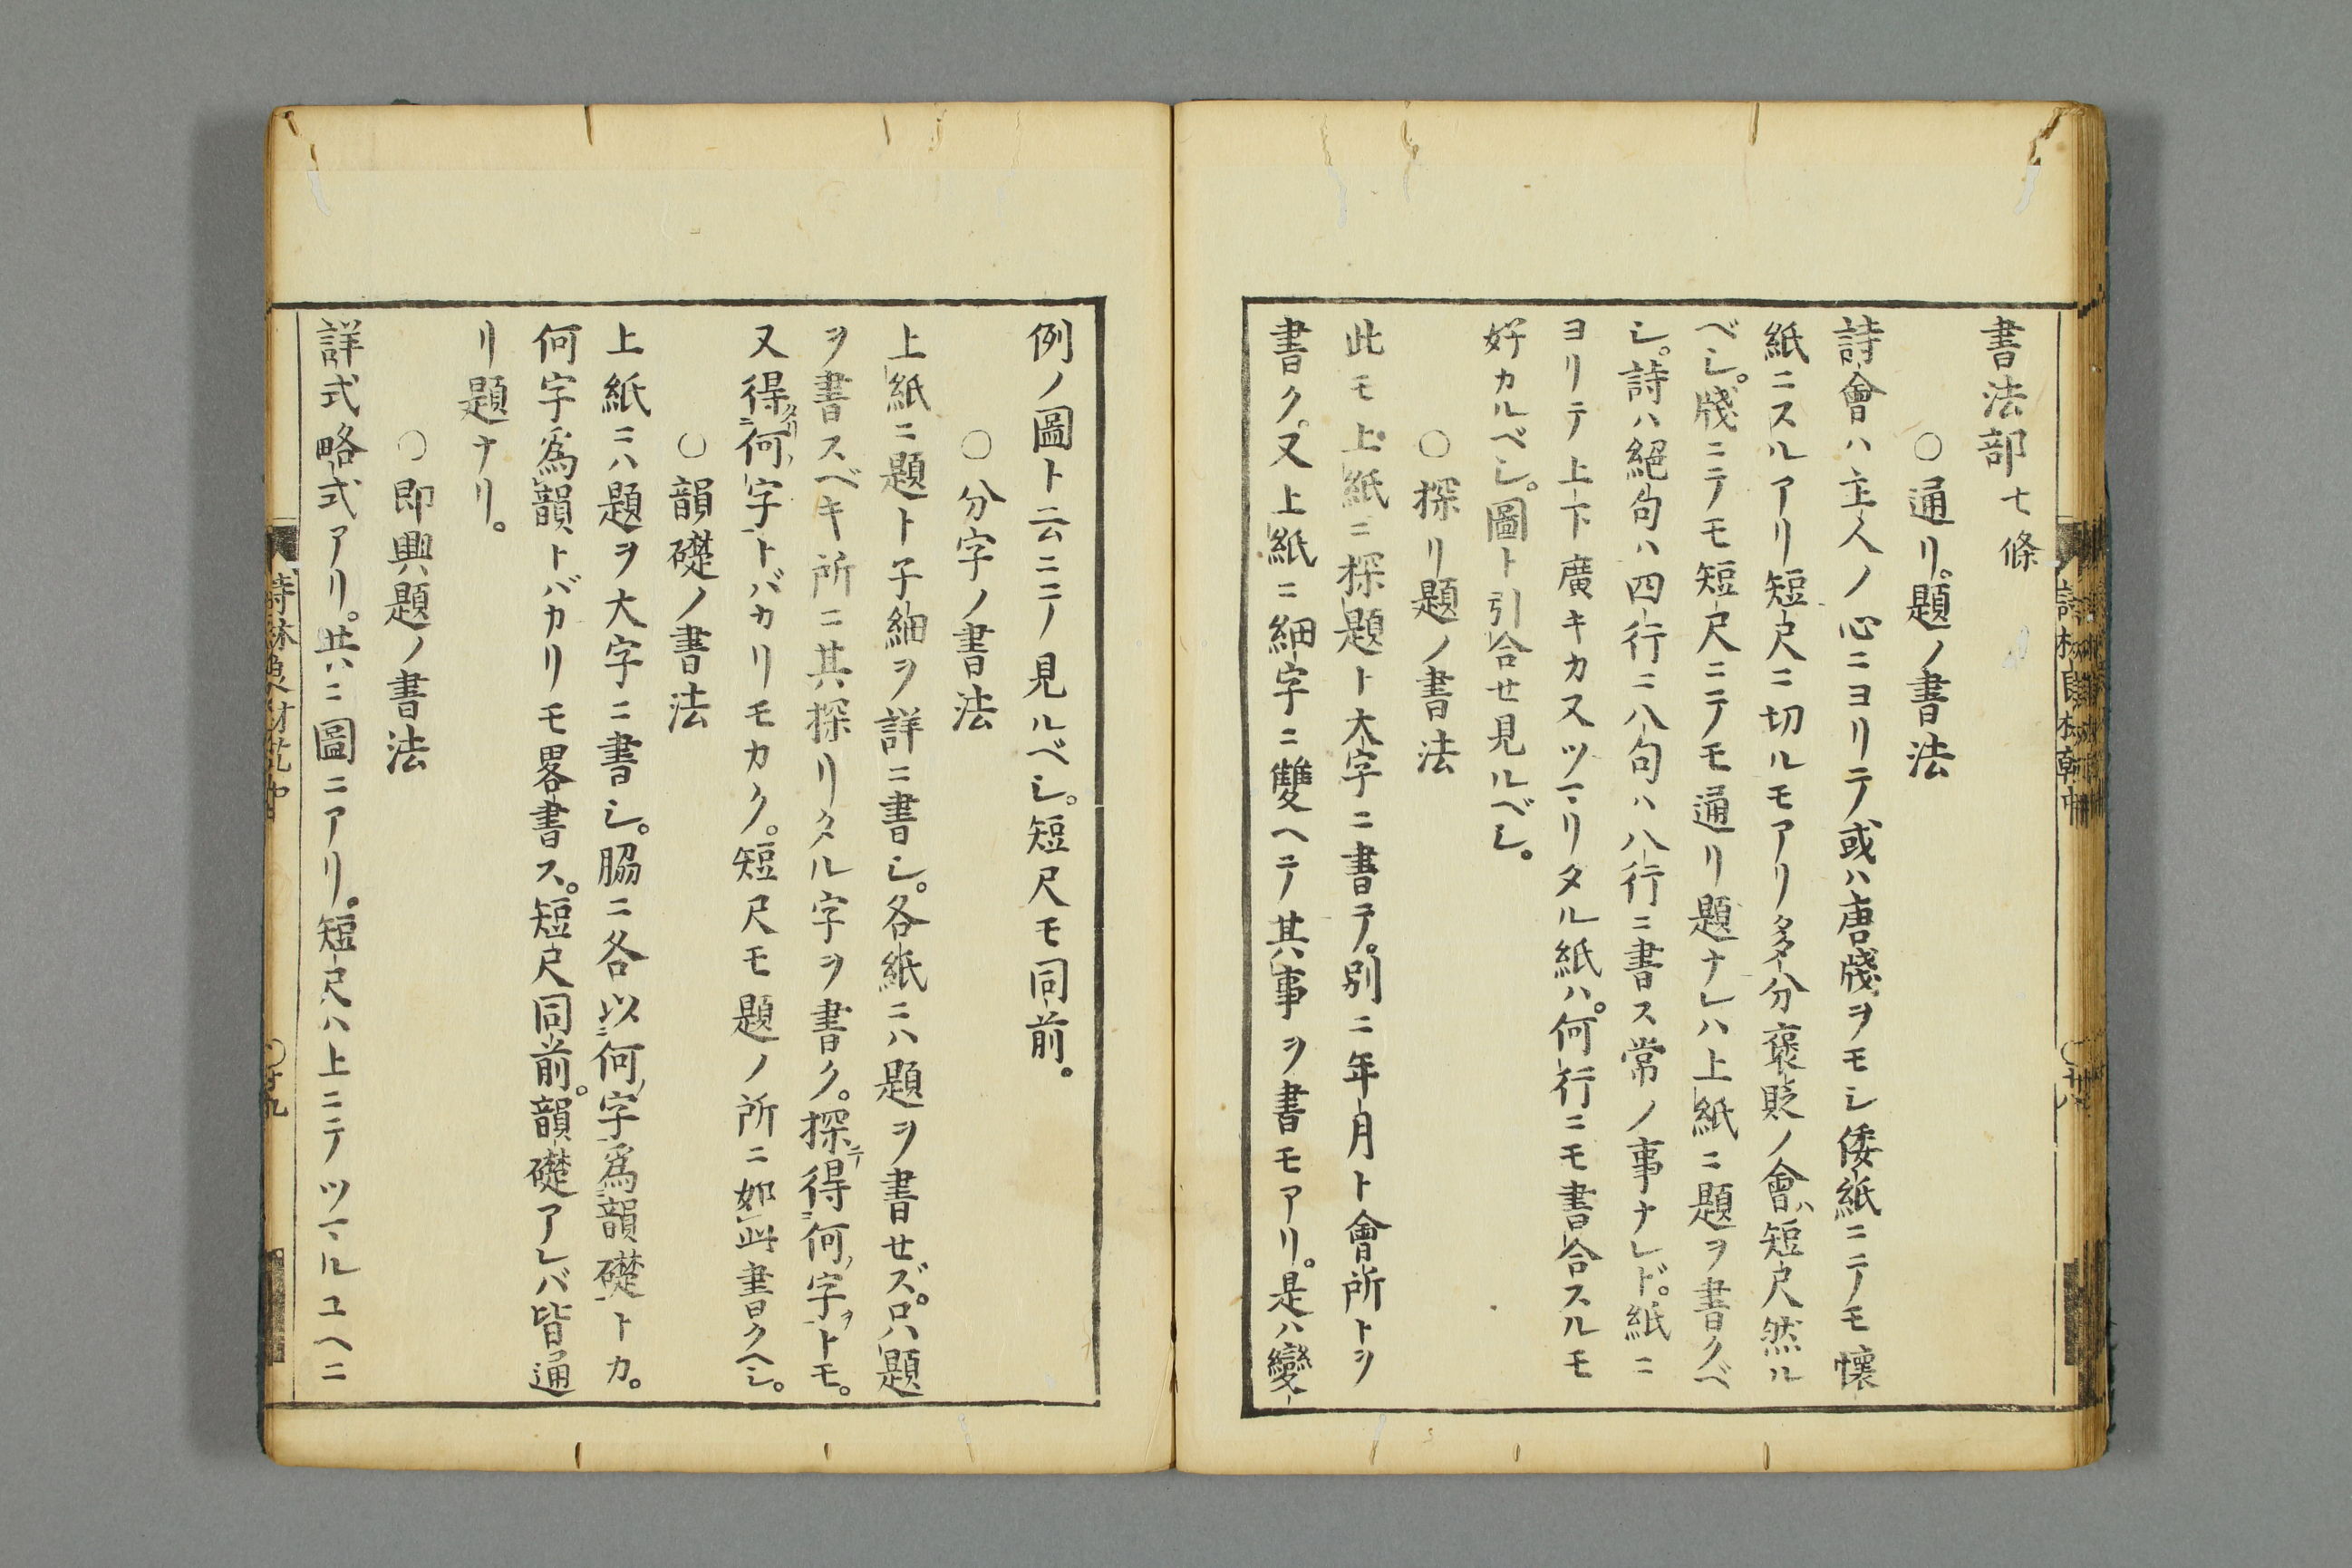 書法部 七條
○通リ題ノ書法
詩會ハ主人ノ心ニヨリテ或ハ唐牋ヲモシ倭紙ニテモ懷
紙ニスルアリ短尺ニ切ルモアリ多分褒貶ノ會ハ短尺然ル
ベシ。牋ニテモ短尺ニテモ通リ題ナレハ上紙ニ題ヲ書クベ
シ。詩ハ絕句ハ四行ニ八句ハ八行ニ書ス常ノ事ナレド。紙ニ
ヨリテ上下廣キカ又ツマリタル紙ハ。何行ニモ書合スルモ
好カルベシ。圖ト引合セ見ルベシ。
○探リ題ノ書法
此モ上紙ニ探題ト大字ニ書テ。別ニ年月ト會所トヲ
書ク。又上紙ニ細字ニ雙ヘテ其事ヲ書モアリ。是ハ變
例ノ圖ト云ニテ見ルベシ。短尺モ同前。
○分字ノ書法
上紙ニ題ト子細ヲ詳ニ書シ。各紙ニハ題ヲ書セズ。只題
ヲ書スベキ所ニ其探リタル字ヲ書ク。探テ得何ノ字ヲトモ。
又得タリ何ノ字トバカリモカク。短尺モ題ノ所ニ如此書クヘシ。
○韻礎ノ書法
上紙ニハ題ヲ大字ニ書シ。脇ニ各以何ノ字爲韻礎トカ。
何字爲韻トバカリモ畧書ス。短尺同前。韻礎アレバ皆通
リ題ナリ。
○即興題ノ書法
詳式略式アリ。共ニ圖ニアリ。短尺ハ上ニテツマルユヘニ